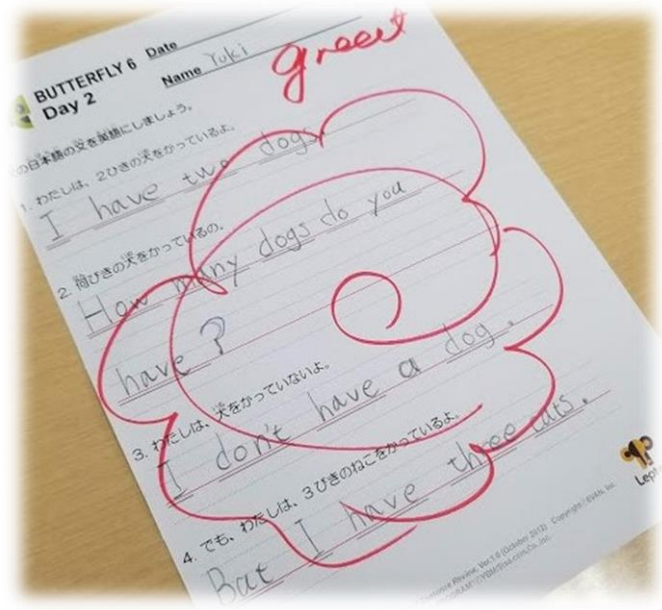 BUTTERFLY 6 Date
Day 2 Name Yuki
great
の日本語の文を英語にしましょう。
1. わたしは、2ひきの犬をかっているよ。
I have two dogs.
2. 何びきの犬をかっているの。
How many dogs do you
have ?
3. わたしは、犬をかっていないよ。
I don't have a dog.
4. でも、わたしは、3びきのねこをかっているよ。
Bat I have three cats.